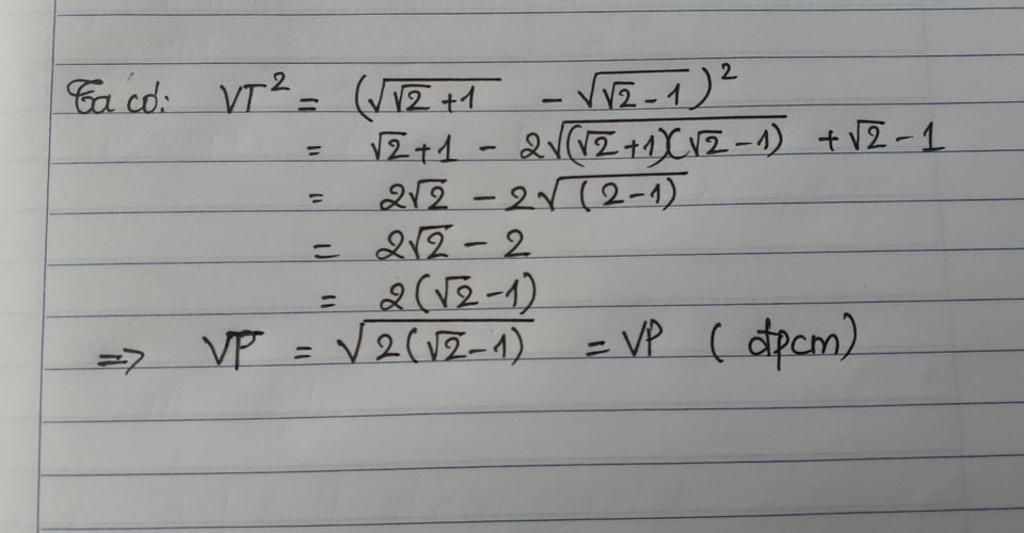 Ta có: VT² = (√(√2+1) - √(√2-1))²
= √2+1 - 2√((√2+1)(√2-1)) + √2-1
= 2√2 - 2√(2-1)
= 2√2 - 2
= 2(√2-1)
=> VP = √(2(√2-1)) = VP (đpcm)